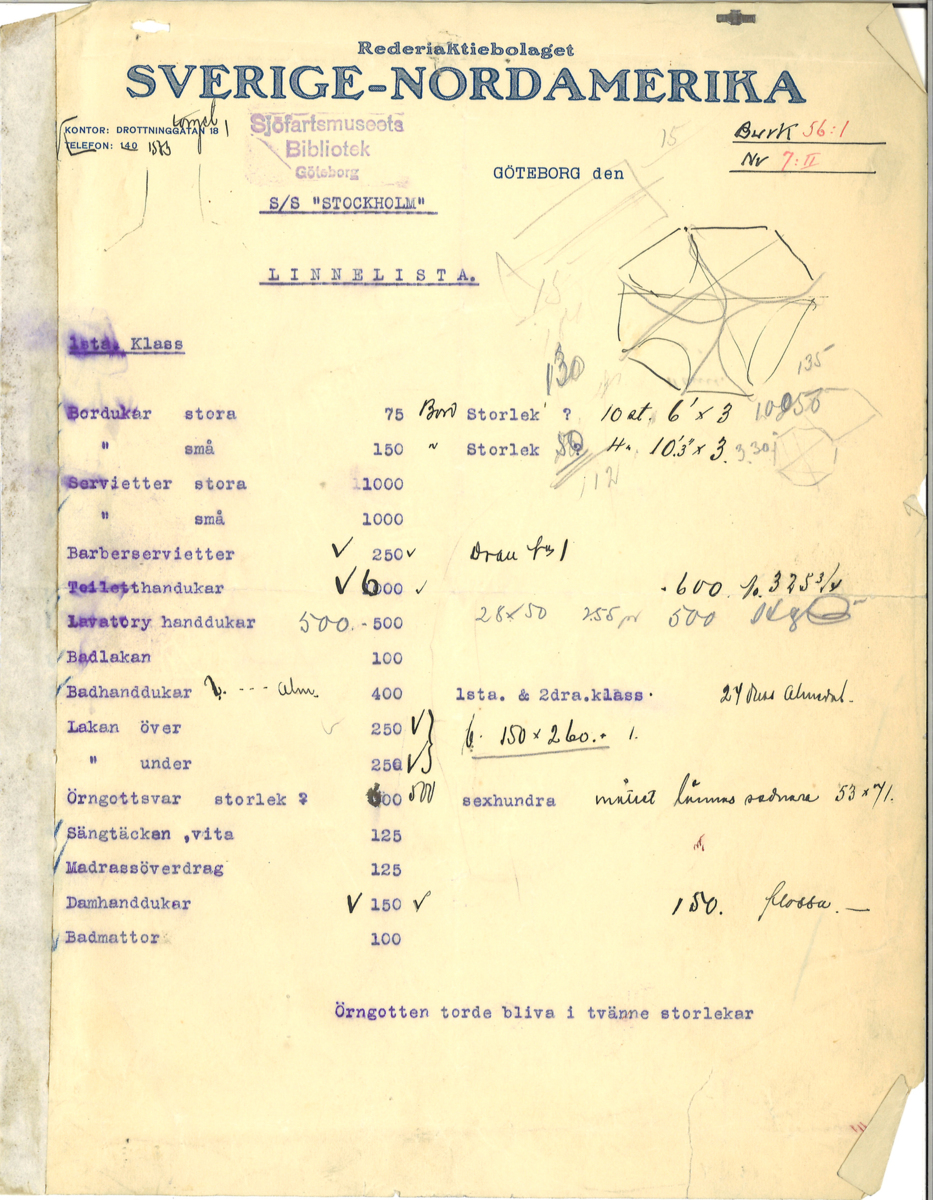 Rederiaktiebolaget
SVERIGE-NORDAMERIKA
KONTOR: DROTTNINGGATAN 18
TELEFON: 140 1573
Sjöfartsmuseets
Bibliotek
Göteborg
15
Burk 56:1
Nr 7:II
GÖTEBORG den
S/S "STOCKHOLM"
LINNELISTA.
15
130
135
1sta. Klass
Bordukar stora 75 Bord Storlek ? 10 st. 6' x 3
" små 150 " Storlek 50 4 " 10'.3" x 3. 3.30
112
Servietter stora 1000
" små 1000
Barberservietter 250
Toiletthandukar 6000 - 600
Lavatory handdukar 500. - 500 28 x 50 255 500
Badlakan 100
Badhanddukar Alm. 400 1sta. & 2dra.klass.
Lakan över 250 150 x 260.
" under 250
Örngottsvar storlek ? 600 500 sexhundra måttet lämnas sednare 53 x 71.
Sängtäcken ,vita 125
Madrassöverdrag 125
Damhanddukar 150 150. flossa.
Badmattor 100
Örngotten torde bliva i tvänne storlekar